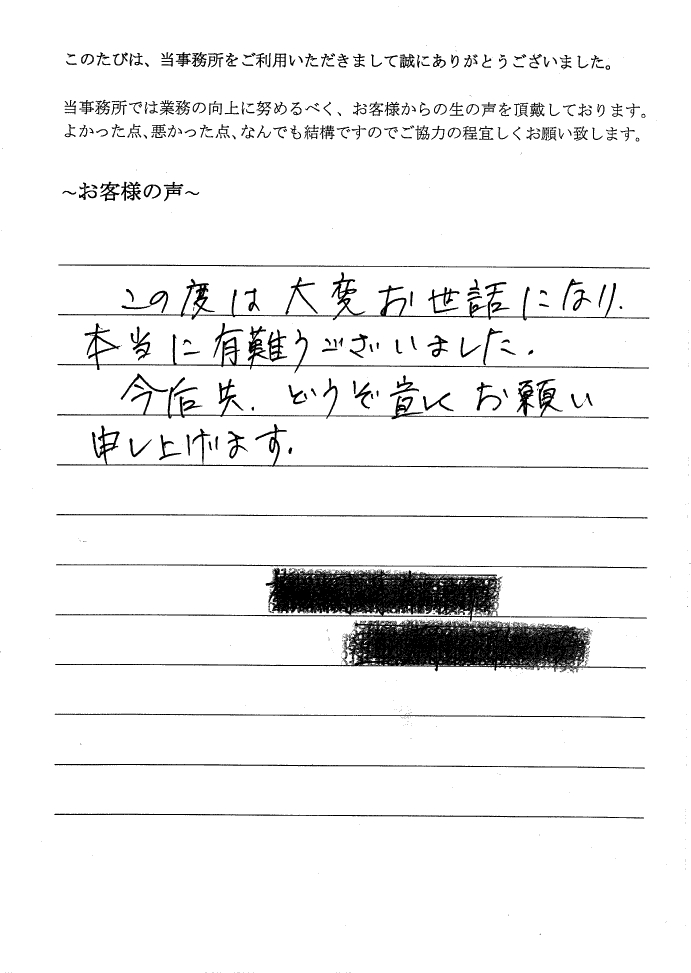 このたびは、当事務所をご利用いただきまして誠にありがとうございました。
当事務所では業務の向上に努めるべく、お客様からの生の声を頂戴しております。
よかった点、悪かった点、なんでも結構ですのでご協力の程宜しくお願い致します。
~お客様の声~
この度は大変お世話になり.
本当に有難うございました.
今后共.どうぞ宜しくお願い
申し上げます.